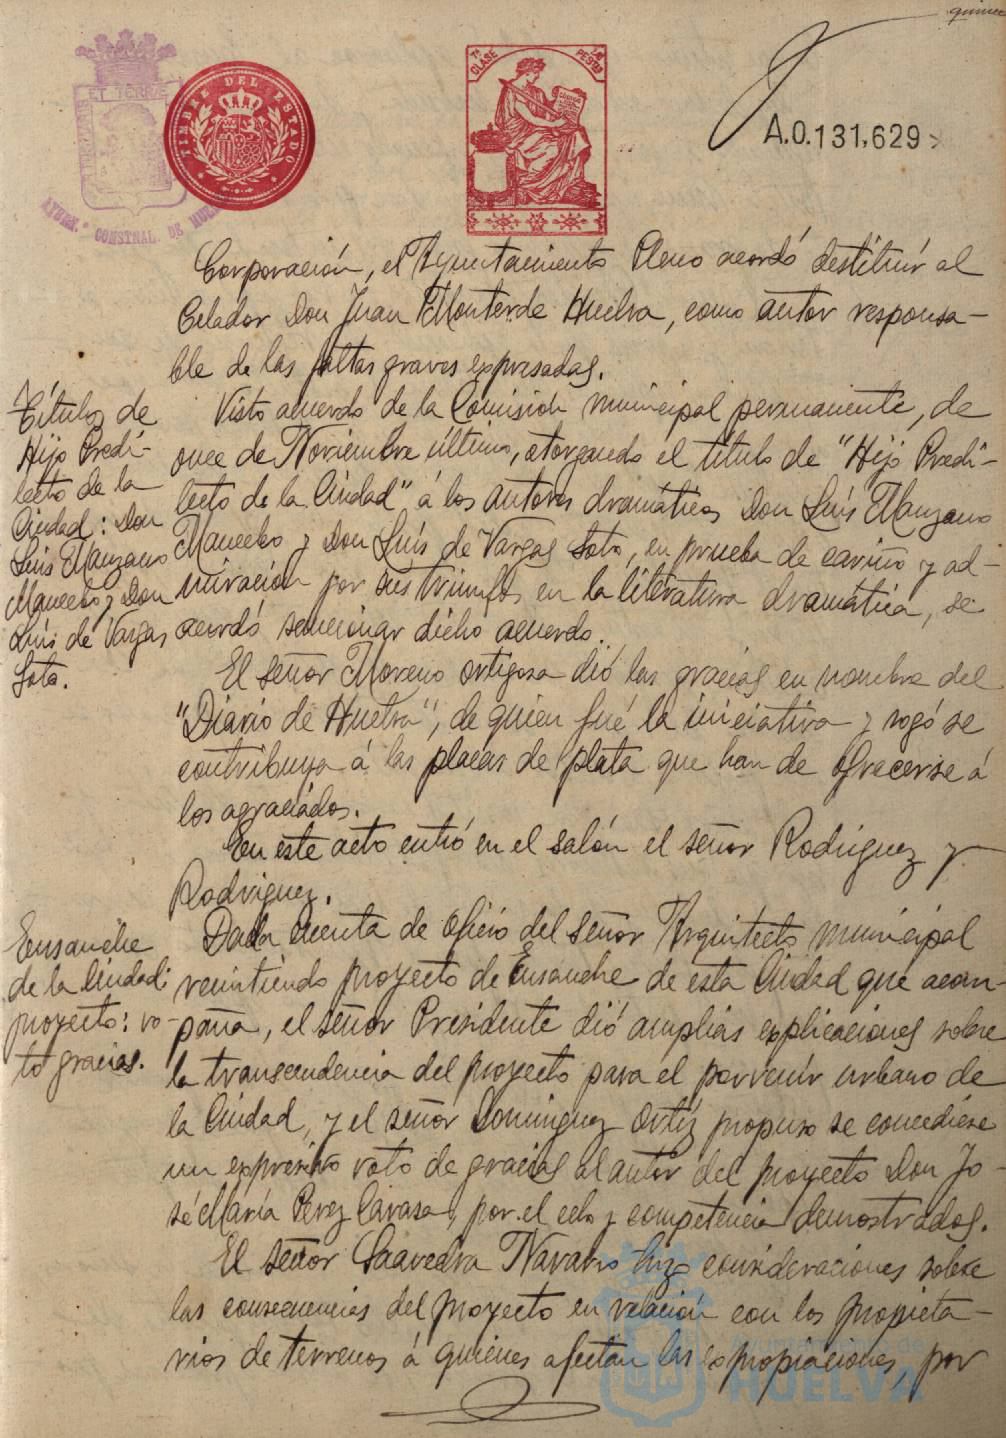 7ª CLASE
1 PESETA
TIMBRE DEL ESTADO
ET TERRÆ
CONSTNAL. DE
A.0.131,629
Corporación, el Ayuntamiento Pleno acordó destituír al
Celador Don Juan Monterde Huelva, como autor responsa-
ble de las faltas graves expresadas.
Títulos de
Hijo Predi-
lecto de la
Ciudad: Don
Luís Manzano
Mancebo y Don
Luís de Vargas
Soto.
Visto acuerdo de la Comisión municipal permanente, de
once de Noviembre último, otorgando el título de "Hijo Predi-
lecto de la Ciudad" á los autores dramáticos Don Luís Manzano
Mancebo y Don Luís de Vargas Soto, en prueba de cariño y ad-
miración por sus triunfos en la literatura dramática, se
acordó sancionar dicho acuerdo.
El señor Moreno Ortigosa dió las gracias en nombre del
"Diario de Huelva", de quien fué la iniciativa y rogó se
contribuya á las placas de plata que han de ofrecerse á
los agraciados.
En este acto entró en el salón el señor Rodríguez y
Rodríguez.
Ensanche
de la Ciudad:
proyecto: vo-
to gracias.
Dada cuenta de oficio del señor Arquitecto municipal
remitiendo proyecto de Ensanche de esta Ciudad que acom-
paña, el señor Presidente dió amplias explicaciones sobre
la transcendencia del proyecto para el porvenir urbano de
la Ciudad, y el señor Domínguez Ortíz propuso se concediese
un expresivo voto de gracias al autor del proyecto Don Jo-
sé María Perez Carasa, por el celo y competencia demostrados.
El señor Saavedra Navarro hizo consideraciones sobre
las consecuencias del proyecto en relación con los propieta-
rios de terrenos á quienes afectan las expropiaciones, por
Ayuntamiento de
HUELVA